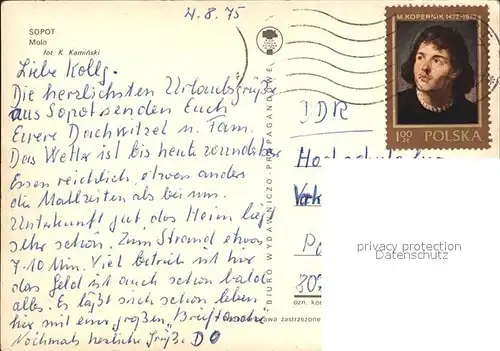 4.8.75
SOPOT
Molo
fot. K. Kamiński
Liebe Kollg.
Die herzlichsten Urlaubsgrüße
aus Sopot senden Euch
Eure Dachwitzel u. Fam.
Das Wetter ist bis heute wunderbar
Essen reichlich etwas anders
die Mahlzeiten als bei uns.
Unterkunft gut das Heim liegt
sehr schön. Zum Strand etwas
7-10 Min. Viel betrieb ist hier
das Geld ist auch schon bald
alles. Es läßt sich schon leben
hier mit einer großen "Brieftasche"
Nochmals herzliche Grüße DO
BIURO WYDAWNICZO-PROPAGANDOWE
M. KOPERNIK 1473-1973
1,50 ZŁ POLSKA
DDR
privacy protection
Datenschutz
zastrzeżone